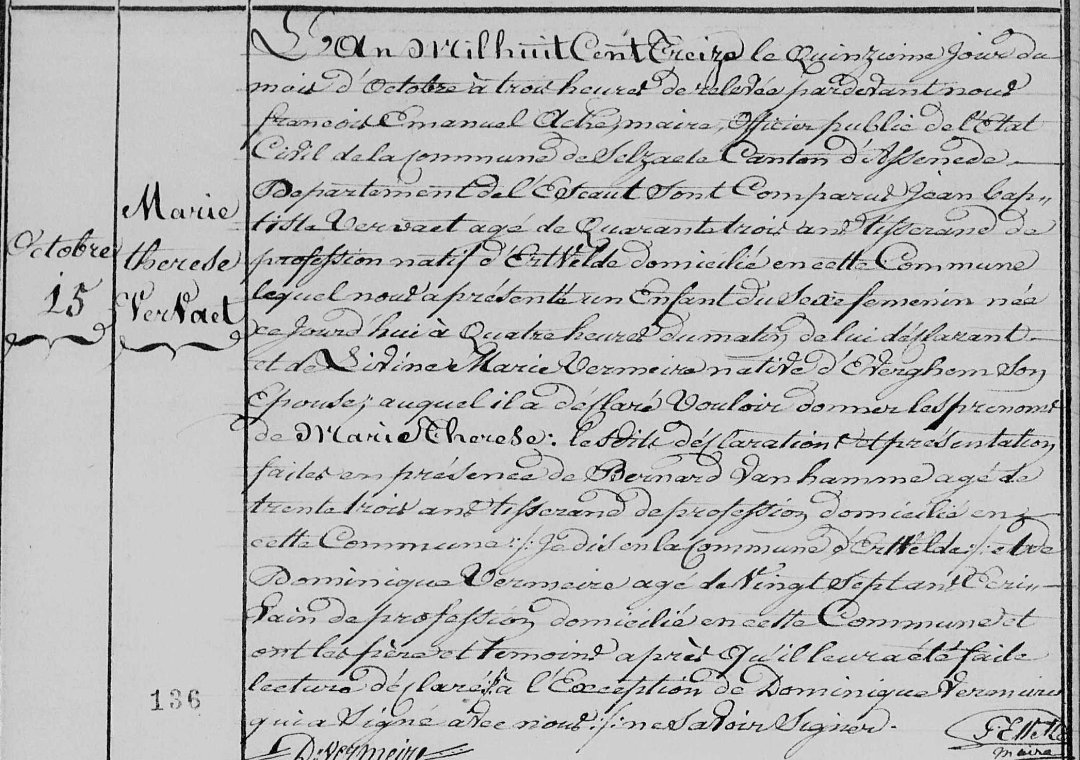 Octobre
15
Marie
therese
VerVaet
136
L'An Mil huit Cent Treize le Quinzieme Jour du
mois d'Octobre à trois heures de relevée pardevant nous
francois Emanuel Acke, maire, Officier public de l'Etat
Civil de la Commune de Selzaete Canton d'Assenede
Departement de l'Escaut Sont Comparus Jean bap„
tiste Vervaet agé de Quarante trois ans tisserand de
profession natif d'ErtVelde domicilié en cette Commune
lequel nous a présenté un Enfant du Sexe femenin née
ce Jourd'hui à Quatre heures du matin, de lui déclarant
et de Livine Marie Vermeire native d'Everghem Son
Epouse; auquel il a déclaré Vouloir donner les prenoms
de Marie Therese: lesdits déclaration et présentation
faites en présence de Bernard Vanhamme agé de
trente trois ans tisserand de profession domicilié en
cette Commune :/: Je dis en la Commune d'ErtVelde :/: et de
Dominique Vermeire agé de Vingt Sept ans Ecri„
Vain de profession domicilié en cette Commune et
ont les père et temoins après Qu'il leur a été faite
lecture déclaré :/: à l'Exception de Dominique Vermeire
qui a Signé avec nous :/: ne Savoir Signer.
D. Vermeire
maire